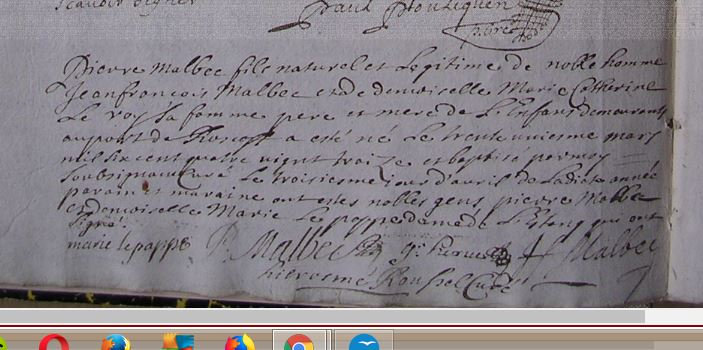 scavoir signer
paul
Pierre Malbec fils naturel et Legitime de noble homme
Jean francois Malbec et de demoiselle Marie Catherine
Le roy sa famme pere et mere de L'Enfans demeurants
au port de Roscoff a esté né Le trente uniesme mars
mil six cent quatre vignt traize et baptise par moy
soubsignant Curé Le troisiesme jour d'avril de Ladicte année
parain et maraine ont estes nobles gens pierre Malbec
et demoiselle Marie Le pappe dame de L'Estang qui ont
signé.
marie lepappe P. Malbec J f Malbec
hierosme Roussel Curé